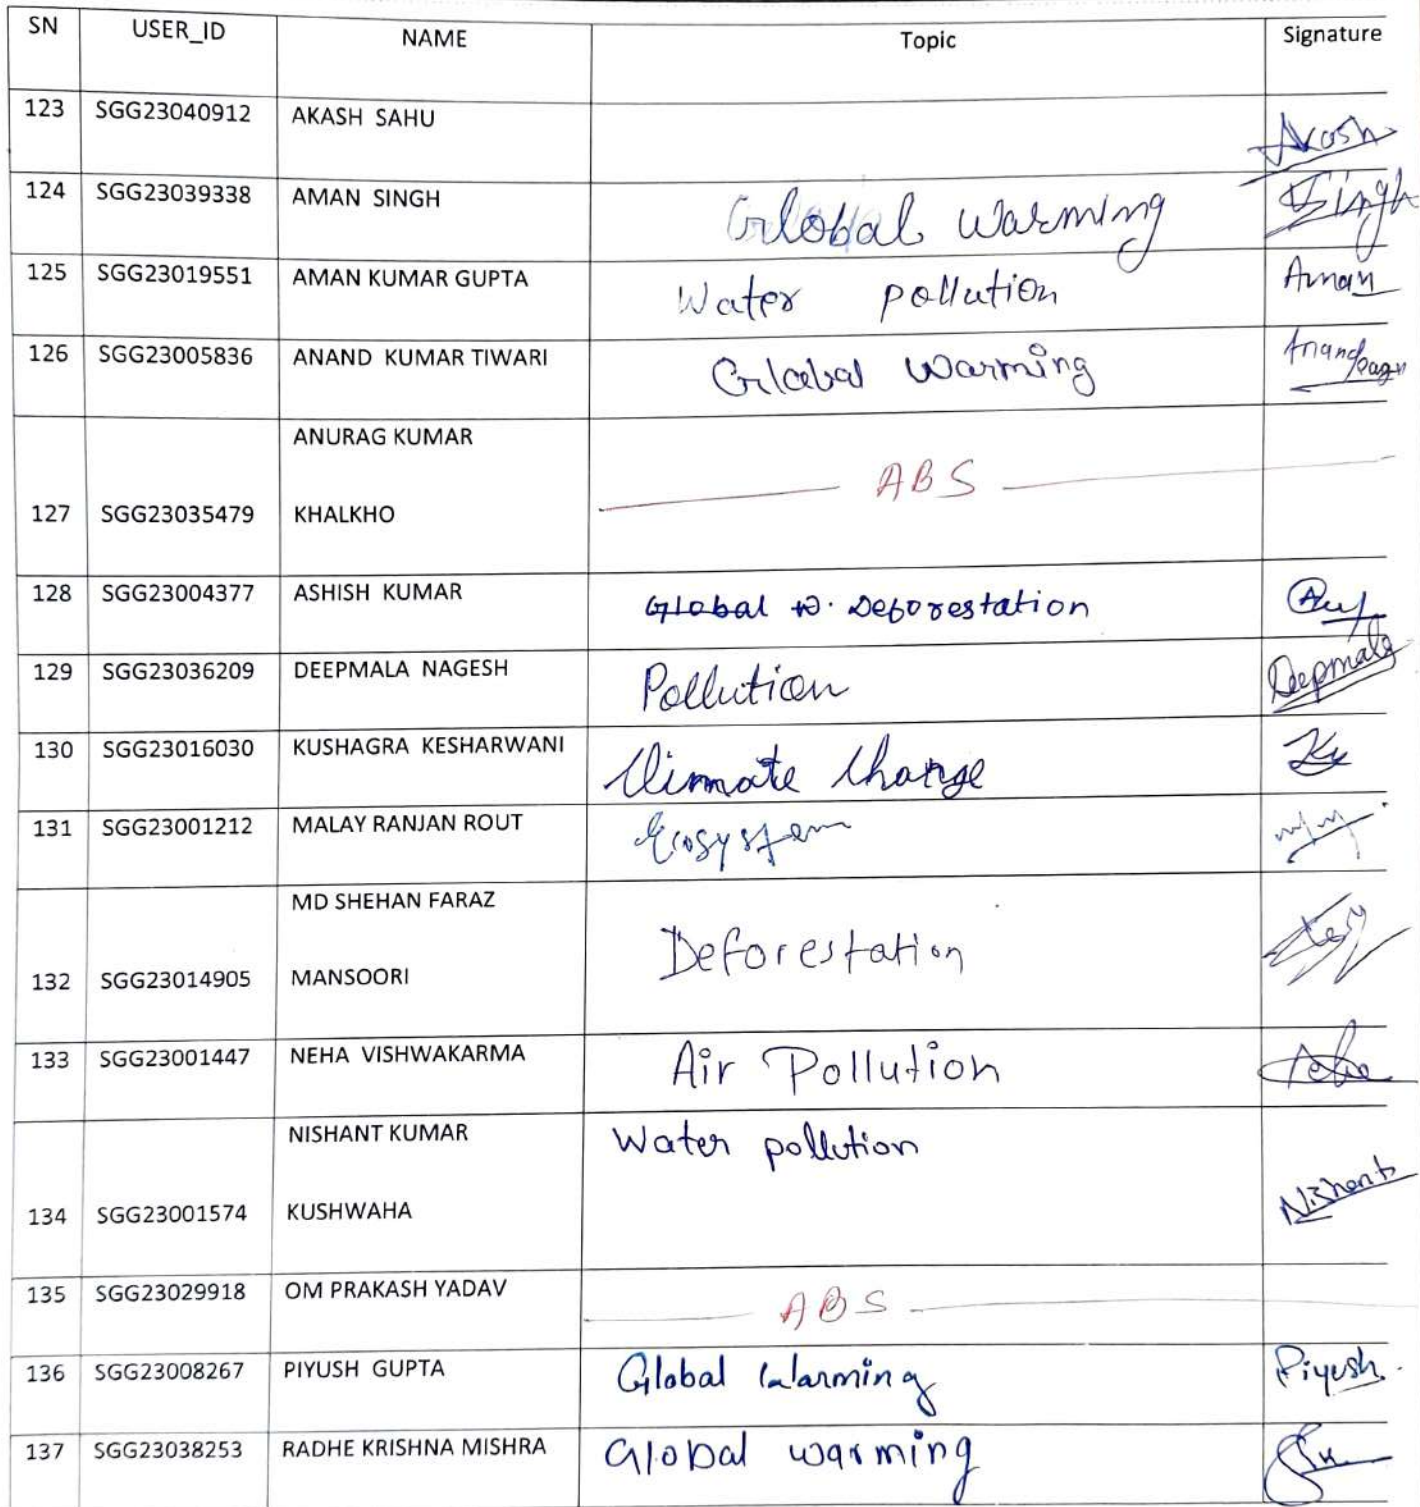 SN USER_ID NAME Topic Signature
123 SGG23040912 AKASH SAHU Akash
124 SGG23039338 AMAN SINGH Global warming Singh
125 SGG23019551 AMAN KUMAR GUPTA Water pollution Aman
126 SGG23005836 ANAND KUMAR TIWARI Global warming Anand
ANURAG KUMAR
ABS
127 SGG23035479 KHALKHO
128 SGG23004377 ASHISH KUMAR Global w. Deforestation
129 SGG23036209 DEEPMALA NAGESH Pollution Deepmala
130 SGG23016030 KUSHAGRA KESHARWANI Climate Change
131 SGG23001212 MALAY RANJAN ROUT Ecosystem
MD SHEHAN FARAZ
Deforestation
132 SGG23014905 MANSOORI
133 SGG23001447 NEHA VISHWAKARMA Air Pollution
NISHANT KUMAR Water pollution
Nishant
134 SGG23001574 KUSHWAHA
135 SGG23029918 OM PRAKASH YADAV ABS
136 SGG23008267 PIYUSH GUPTA Global Warming Piyush.
137 SGG23038253 RADHE KRISHNA MISHRA Global warming